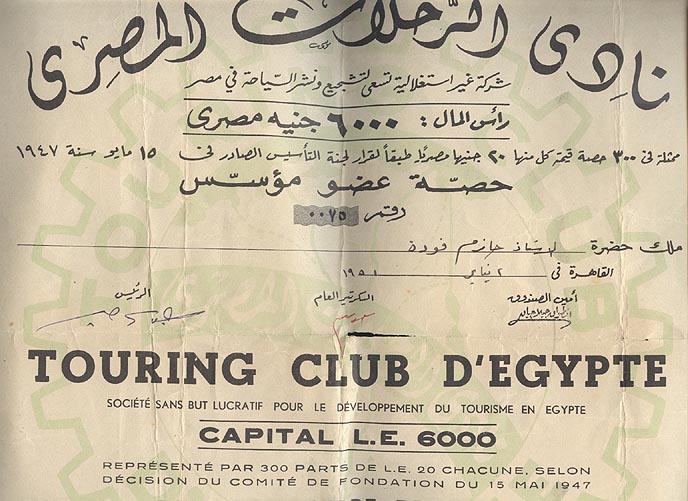 نادى الرحلات المصرى
شركة غير استغلالية تسعى لتشجيع ونشر السياحة في مصر
رأس المال : ٦٠٠٠ جنيه مصرى
ممثلة فى ٣٠٠ حصة قيمة كل منها ٢٠ جنيها مصريا طبقا لقرار لجنة التأسيس الصادر فى ١٥ مايو سنة ١٩٤٧
حصة عضو مؤسس
رقم ٠٠٧٥
ملك حضرة الاستاذ حازم فودة
القاهرة فى ٢ يناير ١٩٥١
أمين الصندوق السكرتير العام الرئيس
TOURING CLUB D'EGYPTE
SOCIÉTÉ SANS BUT LUCRATIF POUR LE DÉVELOPPEMENT DU TOURISME EN EGYPTE
CAPITAL L.E. 6000
REPRÉSENTÉ PAR 300 PARTS DE L.E. 20 CHACUNE, SELON
DÉCISION DU COMITÉ DE FONDATION DU 15 MAI 1947